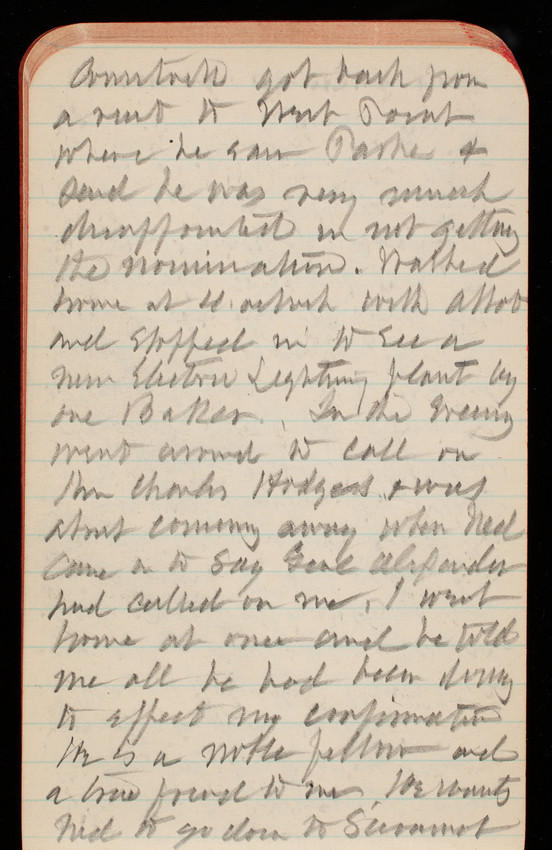 Comstock got back from
a visit to West Point
where he saw Parke &
said he was very much
disappointed in not getting
the nomination. Walked
home at 4 oclock with Abbot
and stopped in to see a
new Electric Lightning plant by
one Baker. In the Evening
went around to call on
Mrs Charles Hodges & was
about coming away when Ned
came in to say Genl Alexander
had called on me, I went
home at once and he told
me all he had been doing
to effect my confirmation
He is a noble fellow and
a true friend to me, He wants
Ned to go down to Savannah